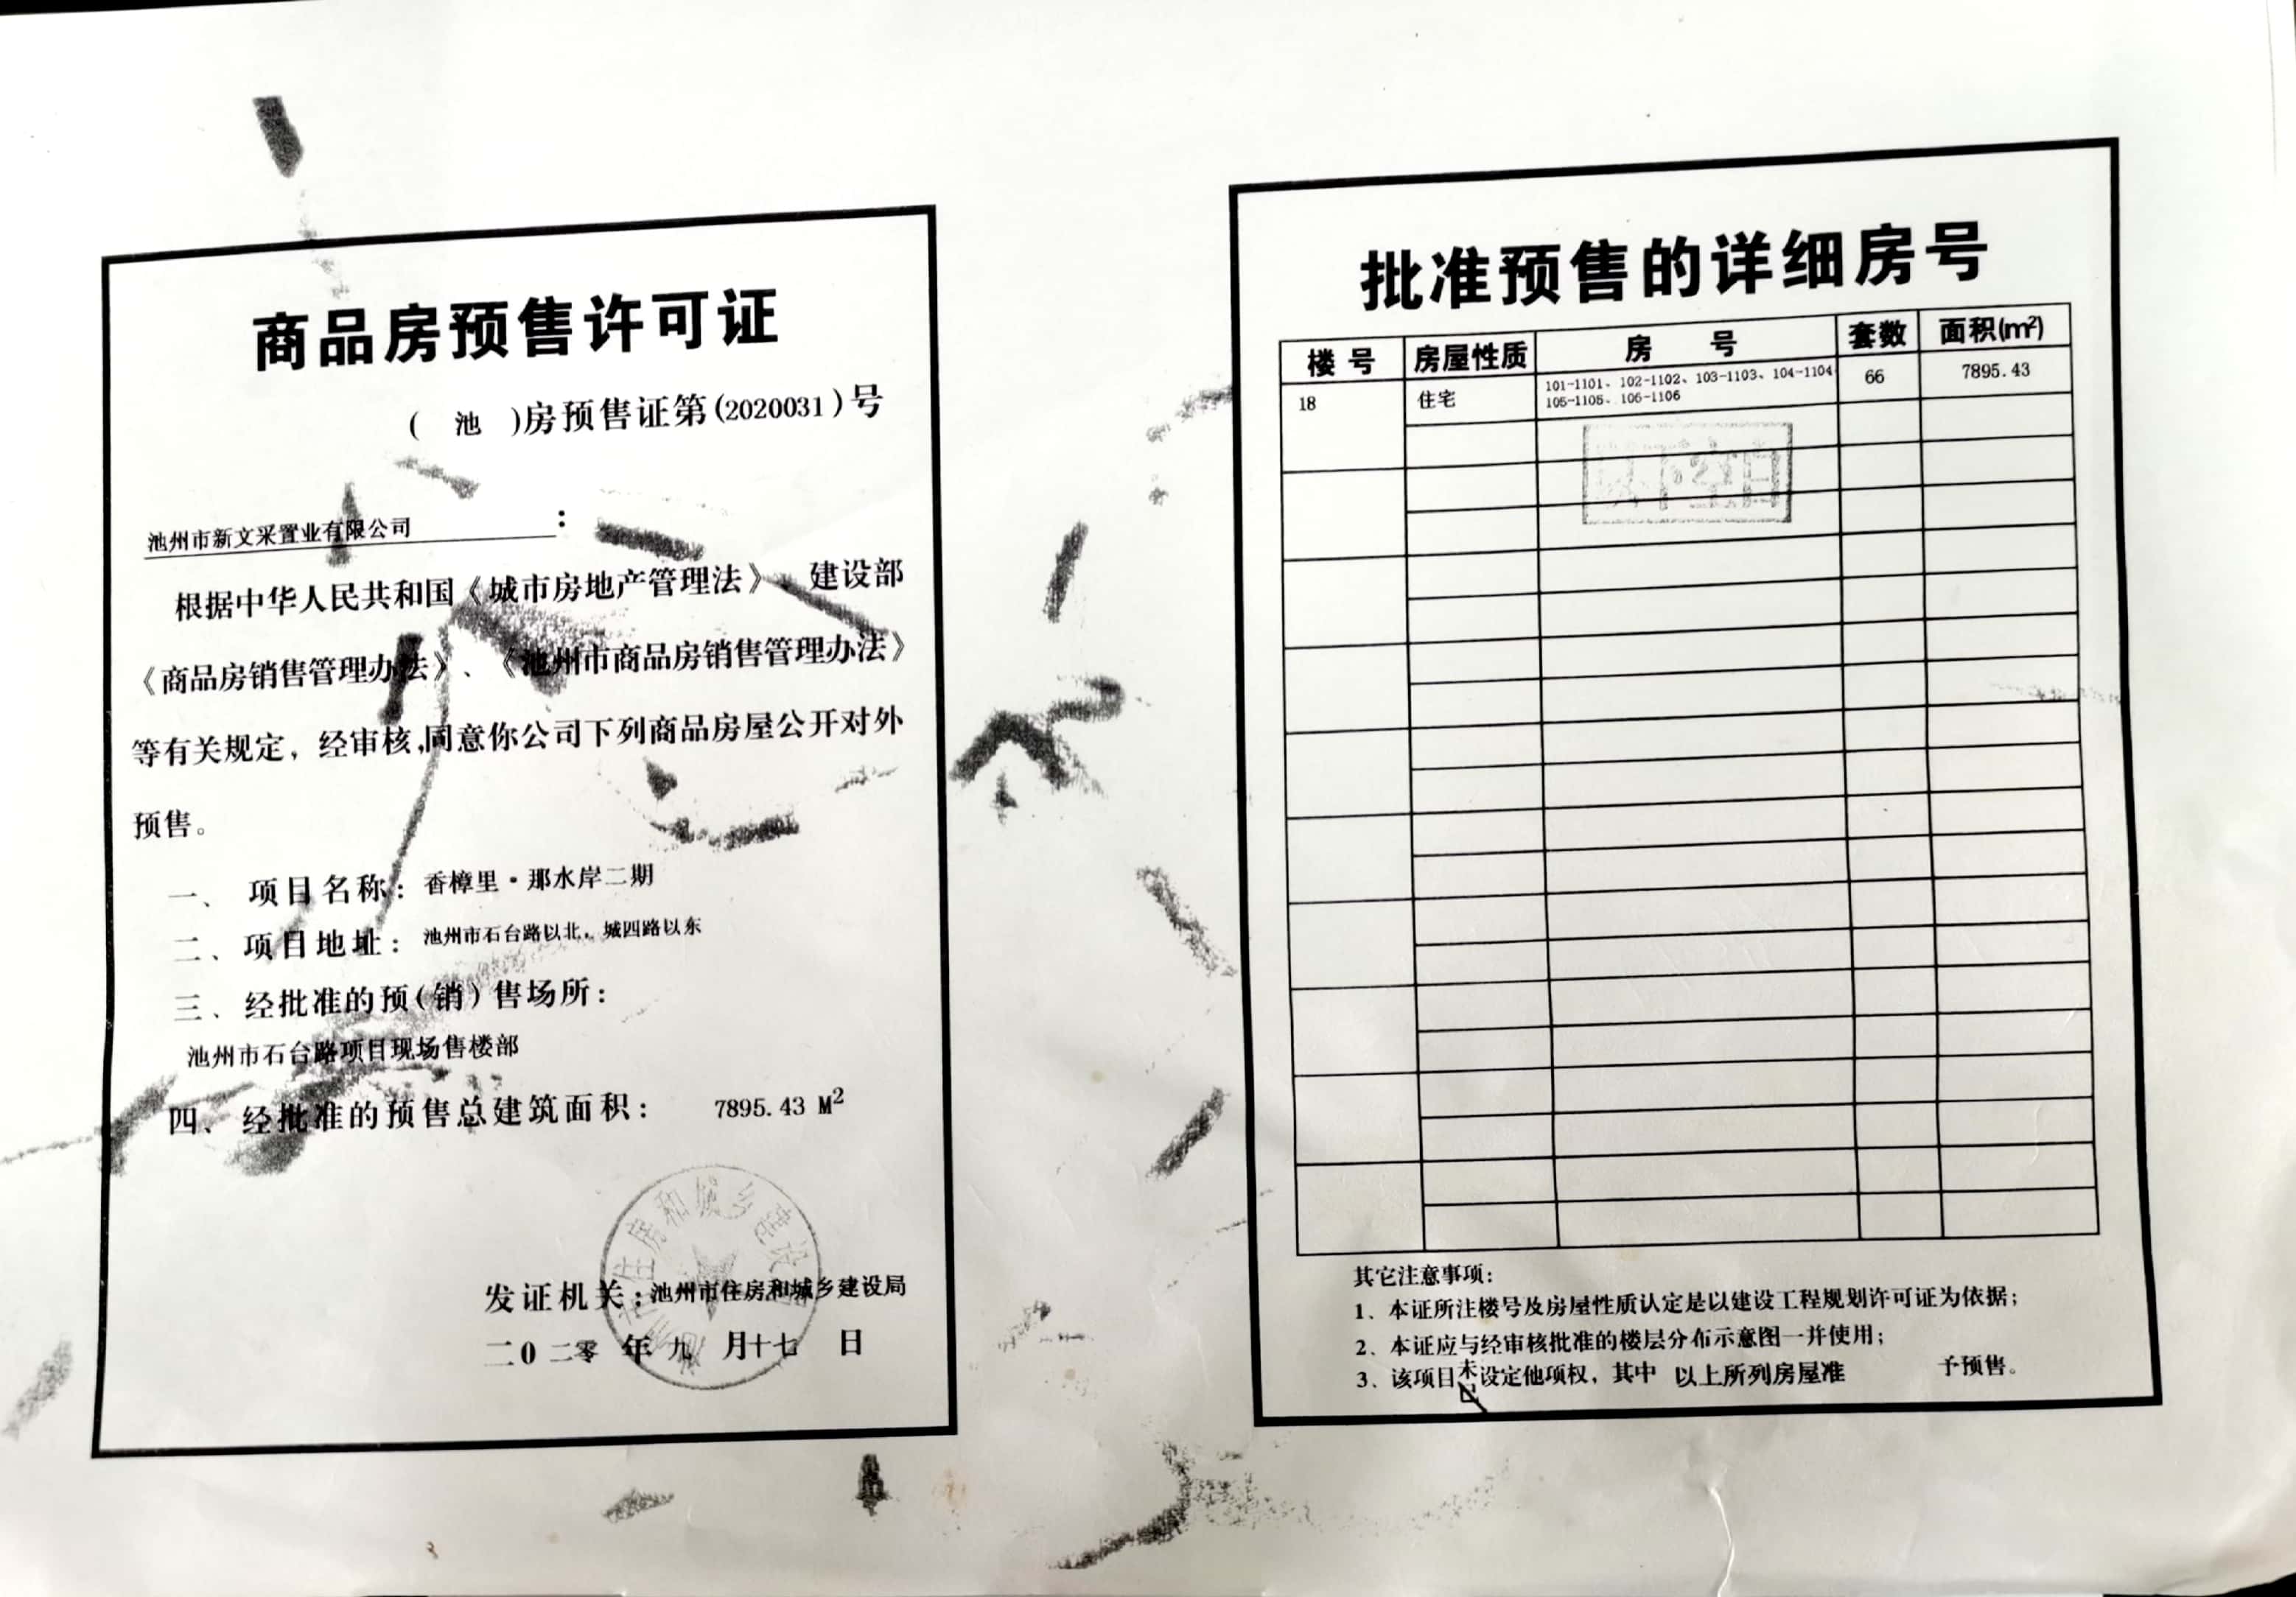 商品房预售许可证
( 池 )房预售证第(2020031)号
池州市新文采置业有限公司 :
根据中华人民共和国《城市房地产管理法》、建设部
《商品房销售管理办法》、《池州市商品房销售管理办法》
等有关规定，经审核,同意你公司下列商品房屋公开对外
预售。
一、 项目名称: 香樟里·那水岸二期
二、项目地址: 池州市石台路以北，城四路以东
三、经批准的预(销)售场所:
池州市石台路项目现场售楼部
四、经批准的预售总建筑面积: 7895.43 M²
池州市住房和城乡建设局
发证机关:池州市住房和城乡建设局
二0二零 年九 月十七 日
批准预售的详细房号
楼号 房屋性质 房 号 套数 面积(m²)
18 住宅 101-1101、102-1102、103-1103、104-1104 66 7895.43
105-1105、106-1106
以下空白
其它注意事项:
1、本证所注楼号及房屋性质认定是以建设工程规划许可证为依据;
2、本证应与经审核批准的楼层分布示意图一并使用;
3、该项目未已设定他项权，其中 以上所列房屋准 予预售。